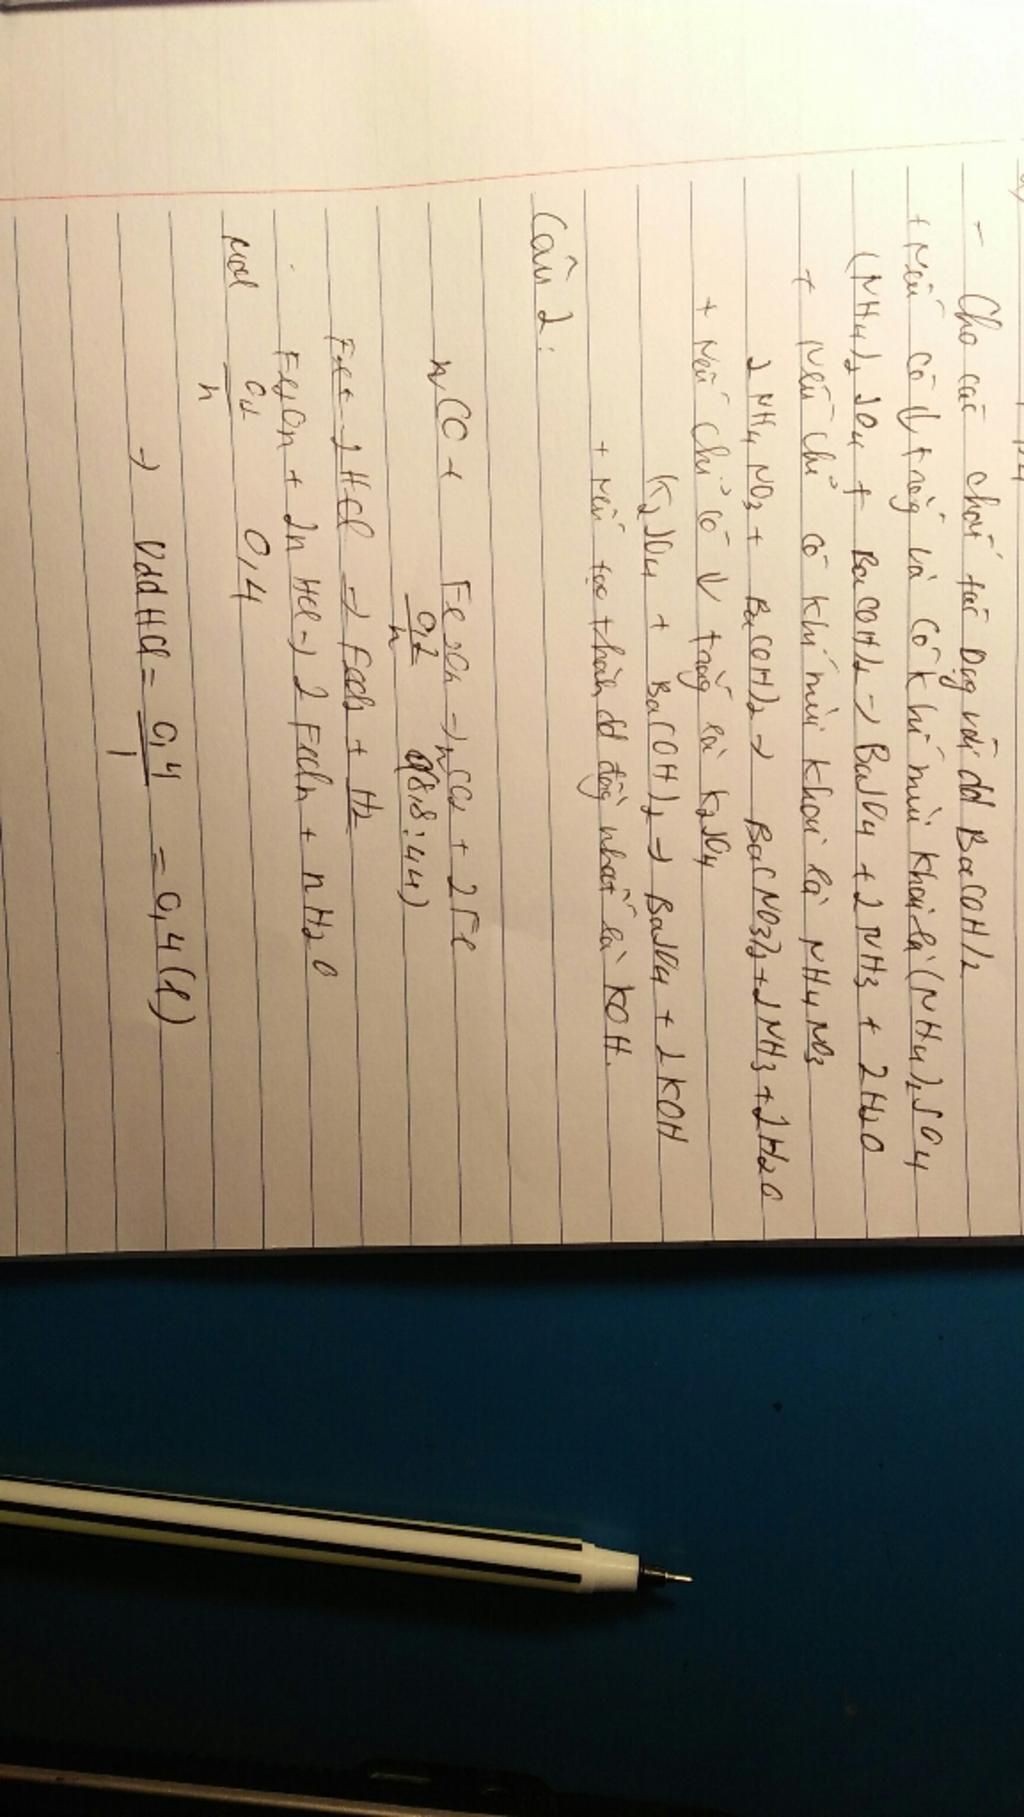 - Cho các chất tác dụng với dd Ba(OH)2
+ Nếu có ↓ trắng và có khí mùi khai là (NH4)2SO4
(NH4)2SO4 + Ba(OH)2 → BaSO4 + 2NH3 + 2H2O
+ Nếu chỉ có khí mùi khai là NH4NO3
2NH4NO3 + Ba(OH)2 → Ba(NO3)2 + 2NH3 + 2H2O
+ Nếu chỉ có ↓ trắng là K2SO4
K2SO4 + Ba(OH)2 → BaSO4 + 2KOH
+ Nếu tạo thành dd đồng nhất là KOH.
Câu 2:
nCO + Fe2On → nCO2 + 2Fe
0,2/n (8,8:44)
Fe + 2HCl → FeCl2 + H2
Fe2On + 2n HCl → 2FeCln + nH2O
Mol 0,2/n 0,4
→ VddHCl = 0,4/1 = 0,4 (l)